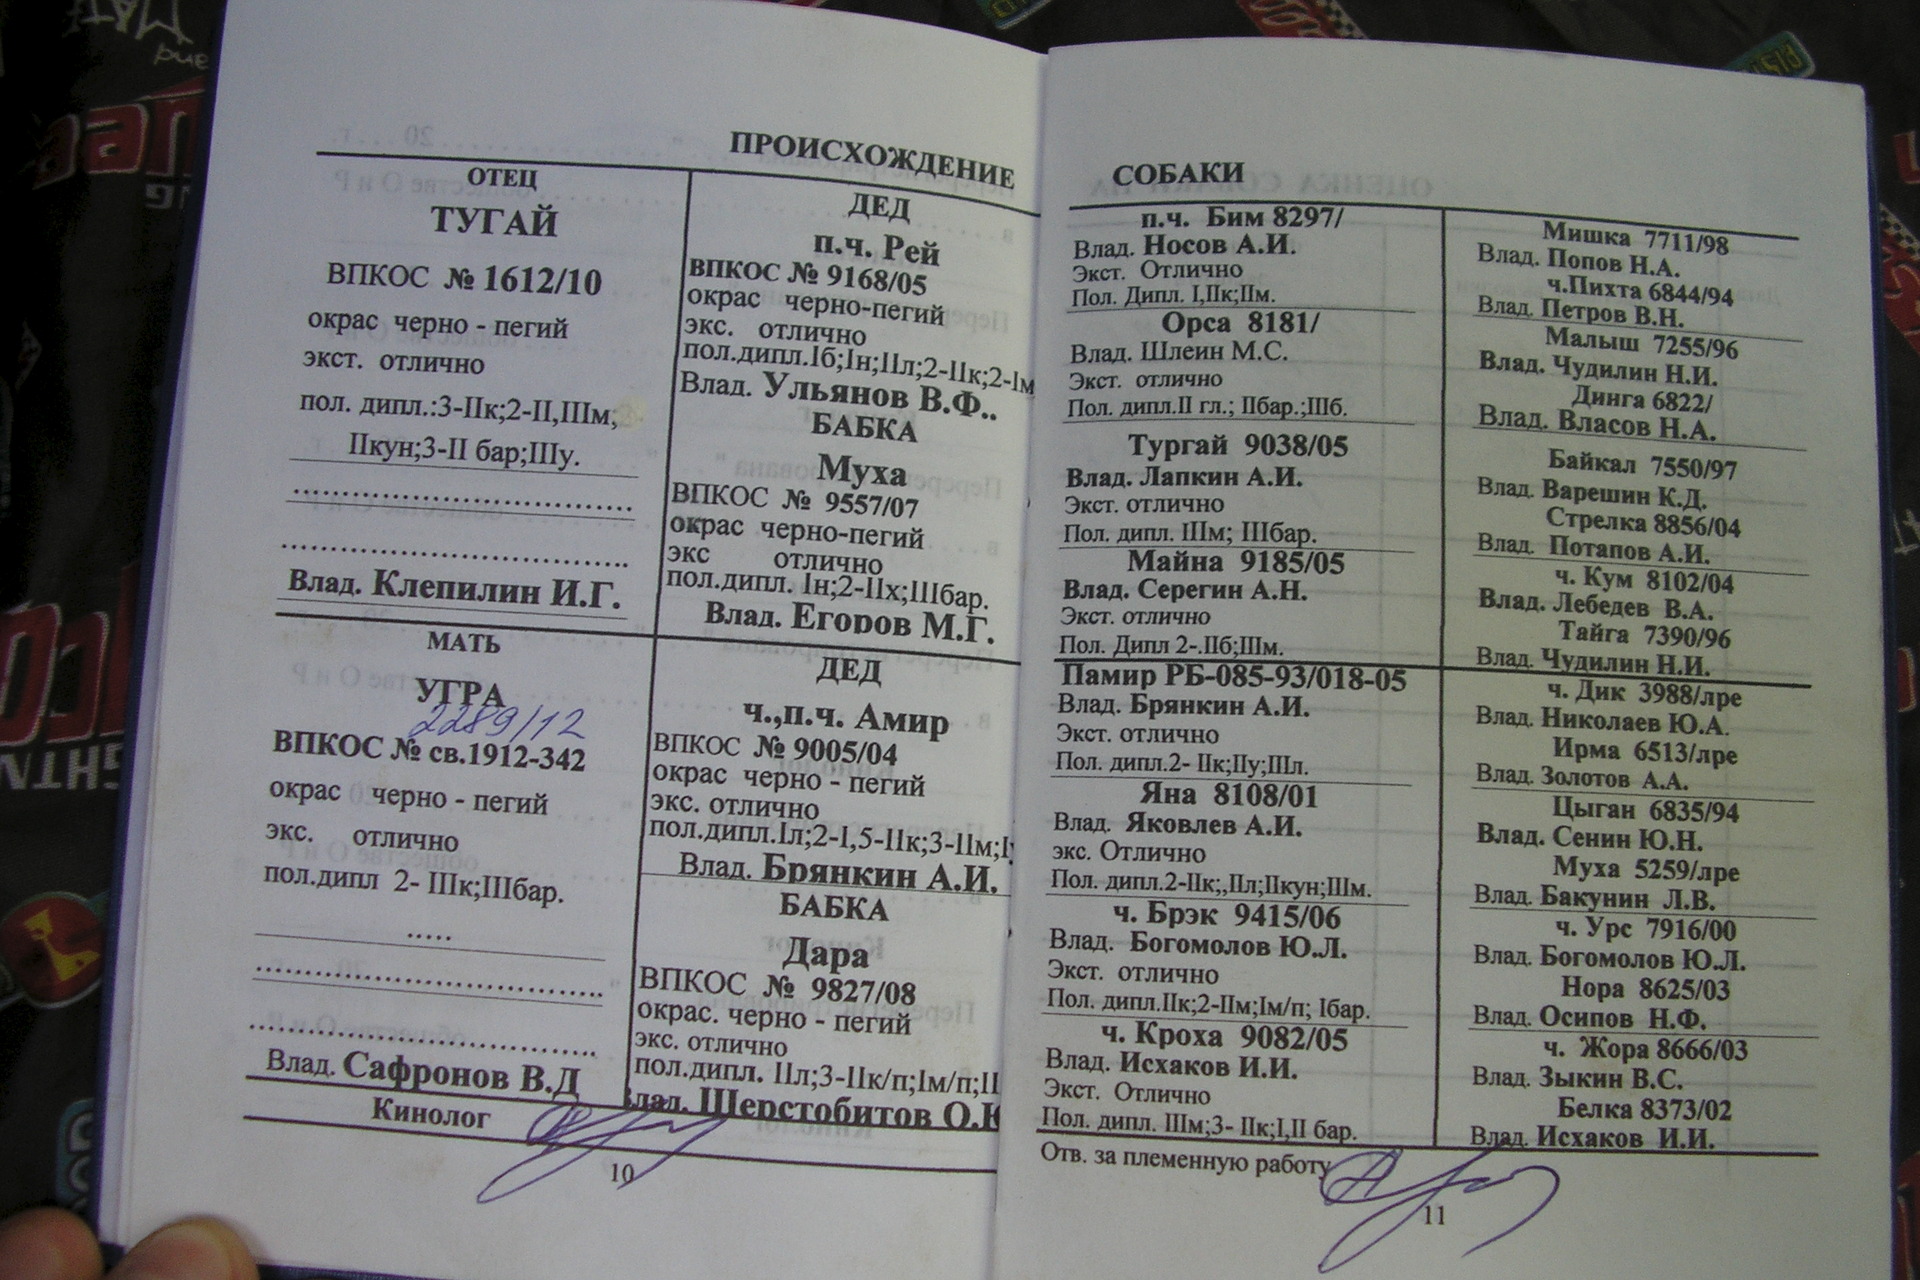 ПРОИСХОЖДЕНИЕ
ОТЕЦ
ТУГАЙ
ВПКОС № 1612/10
окрас черно - пегий
экст. отлично
пол. дипл.:3-IIк;2-II,IIIм;
IIкун;3-II бар;IIIу.
Влад. Клепилин И.Г.
ДЕД
п.ч. Рей
ВПКОС № 9168/05
окрас черно-пегий
экс. отлично
пол.дипл.Iб;Iн;IIл;2-IIк;2-Iм
Влад. Ульянов В.Ф..
БАБКА
Муха
ВПКОС № 9557/07
окрас черно-пегий
экс отлично
пол.дипл. Iн;2-IIх;IIIбар.
Влад. Егоров М.Г.
МАТЬ
УГРА
2289/12
ВПКОС № св.1912-342
окрас черно - пегий
экс. отлично
пол.дипл 2- IIIк;IIIбар.
.....
Влад. Сафронов В.Д
ДЕД
ч.,п.ч. Амир
ВПКОС № 9005/04
окрас черно - пегий
экс. отлично
пол.дипл.Iл;2-I,5-IIк;3-IIм;
Влад. Брянкин А.И.
БАБКА
Дара
ВПКОС № 9827/08
окрас. черно - пегий
экс. отлично
пол.дипл. IIл;3-IIк/п;Iм/п;II
Влад. Шерстобитов О.Ю
Кинолог
10
СОБАКИ
п.ч. Бим 8297/
Влад. Носов А.И.
Экст. Отлично
Пол. Дипл. I,IIк;IIм.
Орса 8181/
Влад. Шлеин М.С.
Экст. отлично
Пол. дипл.II гл.; IIбар.;IIIб.
Тургай 9038/05
Влад. Лапкин А.И.
Экст. отлично
Пол. дипл. IIIм; IIIбар.
Майна 9185/05
Влад. Серегин А.Н.
Экст. отлично
Пол. Дипл 2-.IIб;IIIм.
Памир РБ-085-93/018-05
Влад. Брянкин А.И.
Экст. отлично
Пол. дипл.2- IIк;IIу;IIIл.
Яна 8108/01
Влад. Яковлев А.И.
экс. Отлично
Пол. дипл.2-IIк;,IIл;IIкун;IIIм.
ч. Брэк 9415/06
Влад. Богомолов Ю.Л.
Экст. отлично
Пол. дипл.IIк;2-IIм;Iм/п; Iбар.
ч. Кроха 9082/05
Влад. Исхаков И.И.
Экст. Отлично
Пол. дипл. IIIм;3- IIк;I,II бар.
Мишка 7711/98
Влад. Попов Н.А.
ч.Пихта 6844/94
Влад. Петров В.Н.
Малыш 7255/96
Влад. Чудилин Н.И.
Динга 6822/
Влад. Власов Н.А.
Байкал 7550/97
Влад. Варешин К.Д.
Стрелка 8856/04
Влад. Потапов А.И.
ч. Кум 8102/04
Влад. Лебедев В.А.
Тайга 7390/96
Влад. Чудилин Н.И.
ч. Дик 3988/лре
Влад. Николаев Ю.А.
Ирма 6513/лре
Влад. Золотов А.А.
Цыган 6835/94
Влад. Сенин Ю.Н.
Муха 5259/лре
Влад. Бакунин Л.В.
ч. Урс 7916/00
Влад. Богомолов Ю.Л.
Нора 8625/03
Влад. Осипов Н.Ф.
ч. Жора 8666/03
Влад. Зыкин В.С.
Белка 8373/02
Влад. Исхаков И.И.
Отв. за племенную работу
11